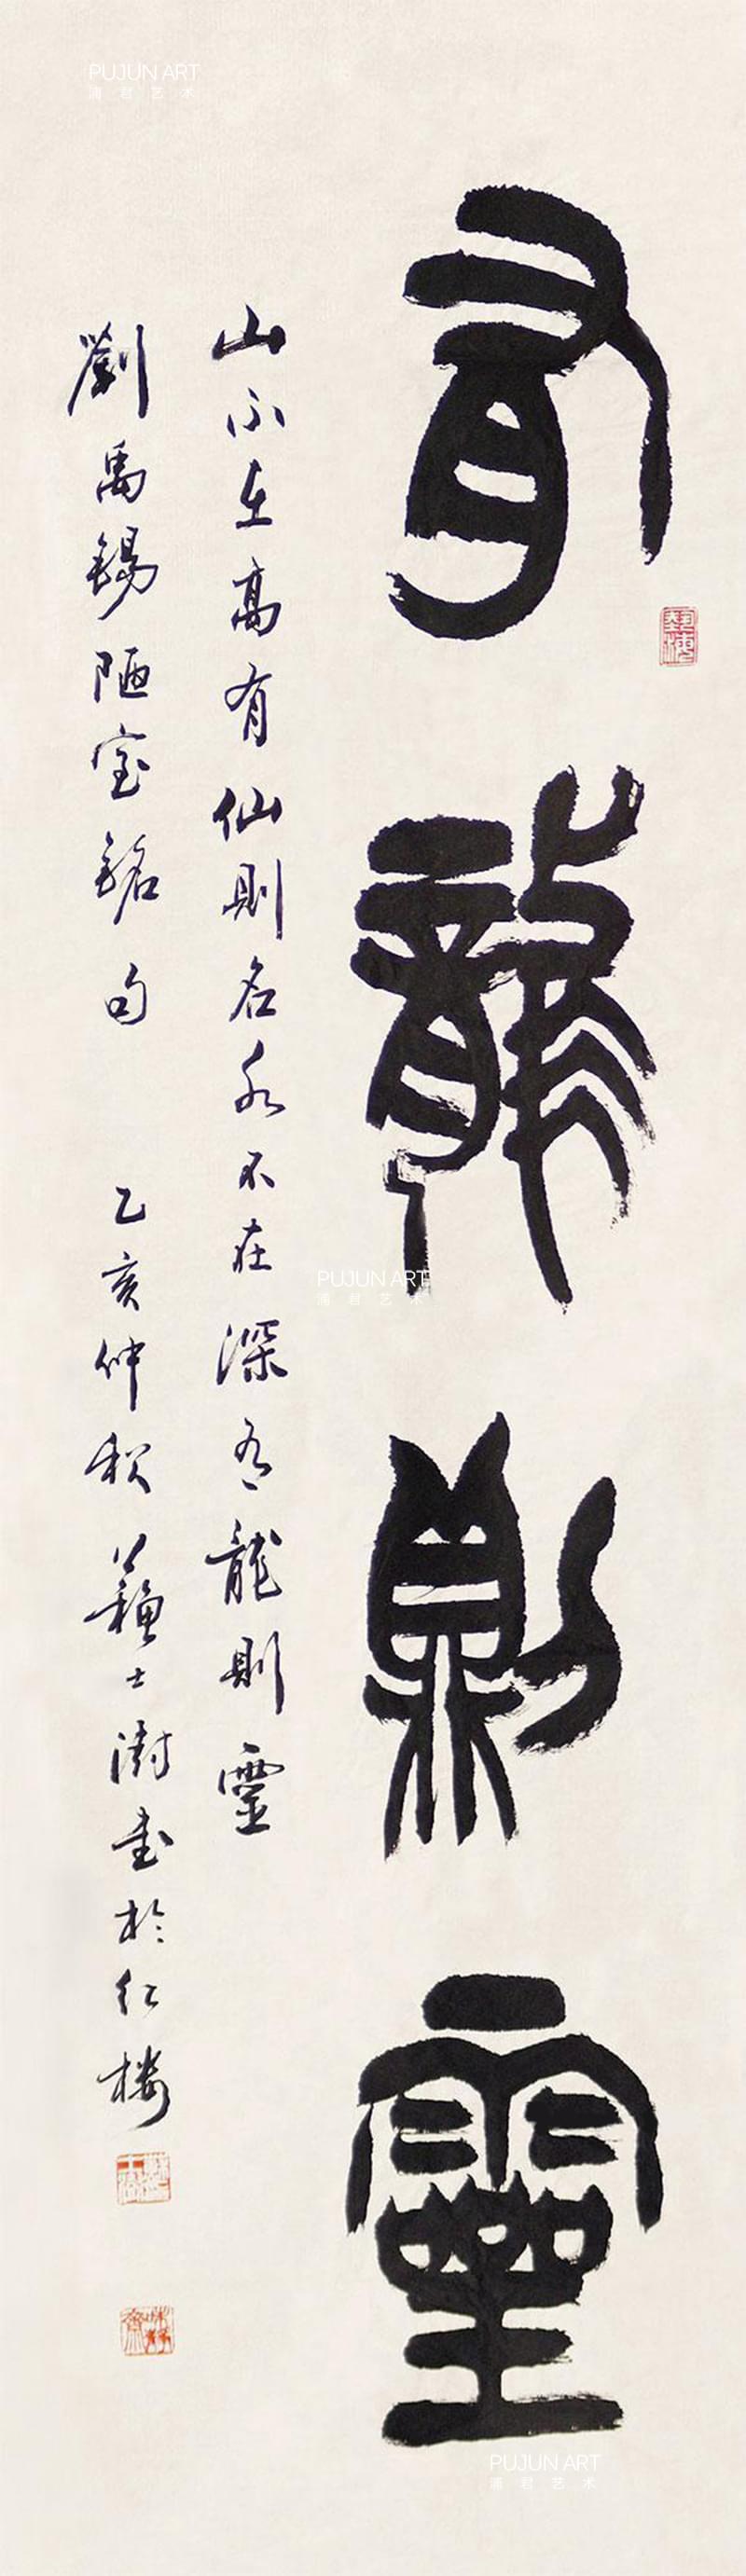 有龍則靈
山不在高有仙則名水不在深有龍則靈
劉禹錫陋室銘句 乙亥仲秋 蘇士澍書於紅樓
PUJUN ART
浦君艺术
PUJUN ART
浦君艺术
PUJUN ART
浦君艺术